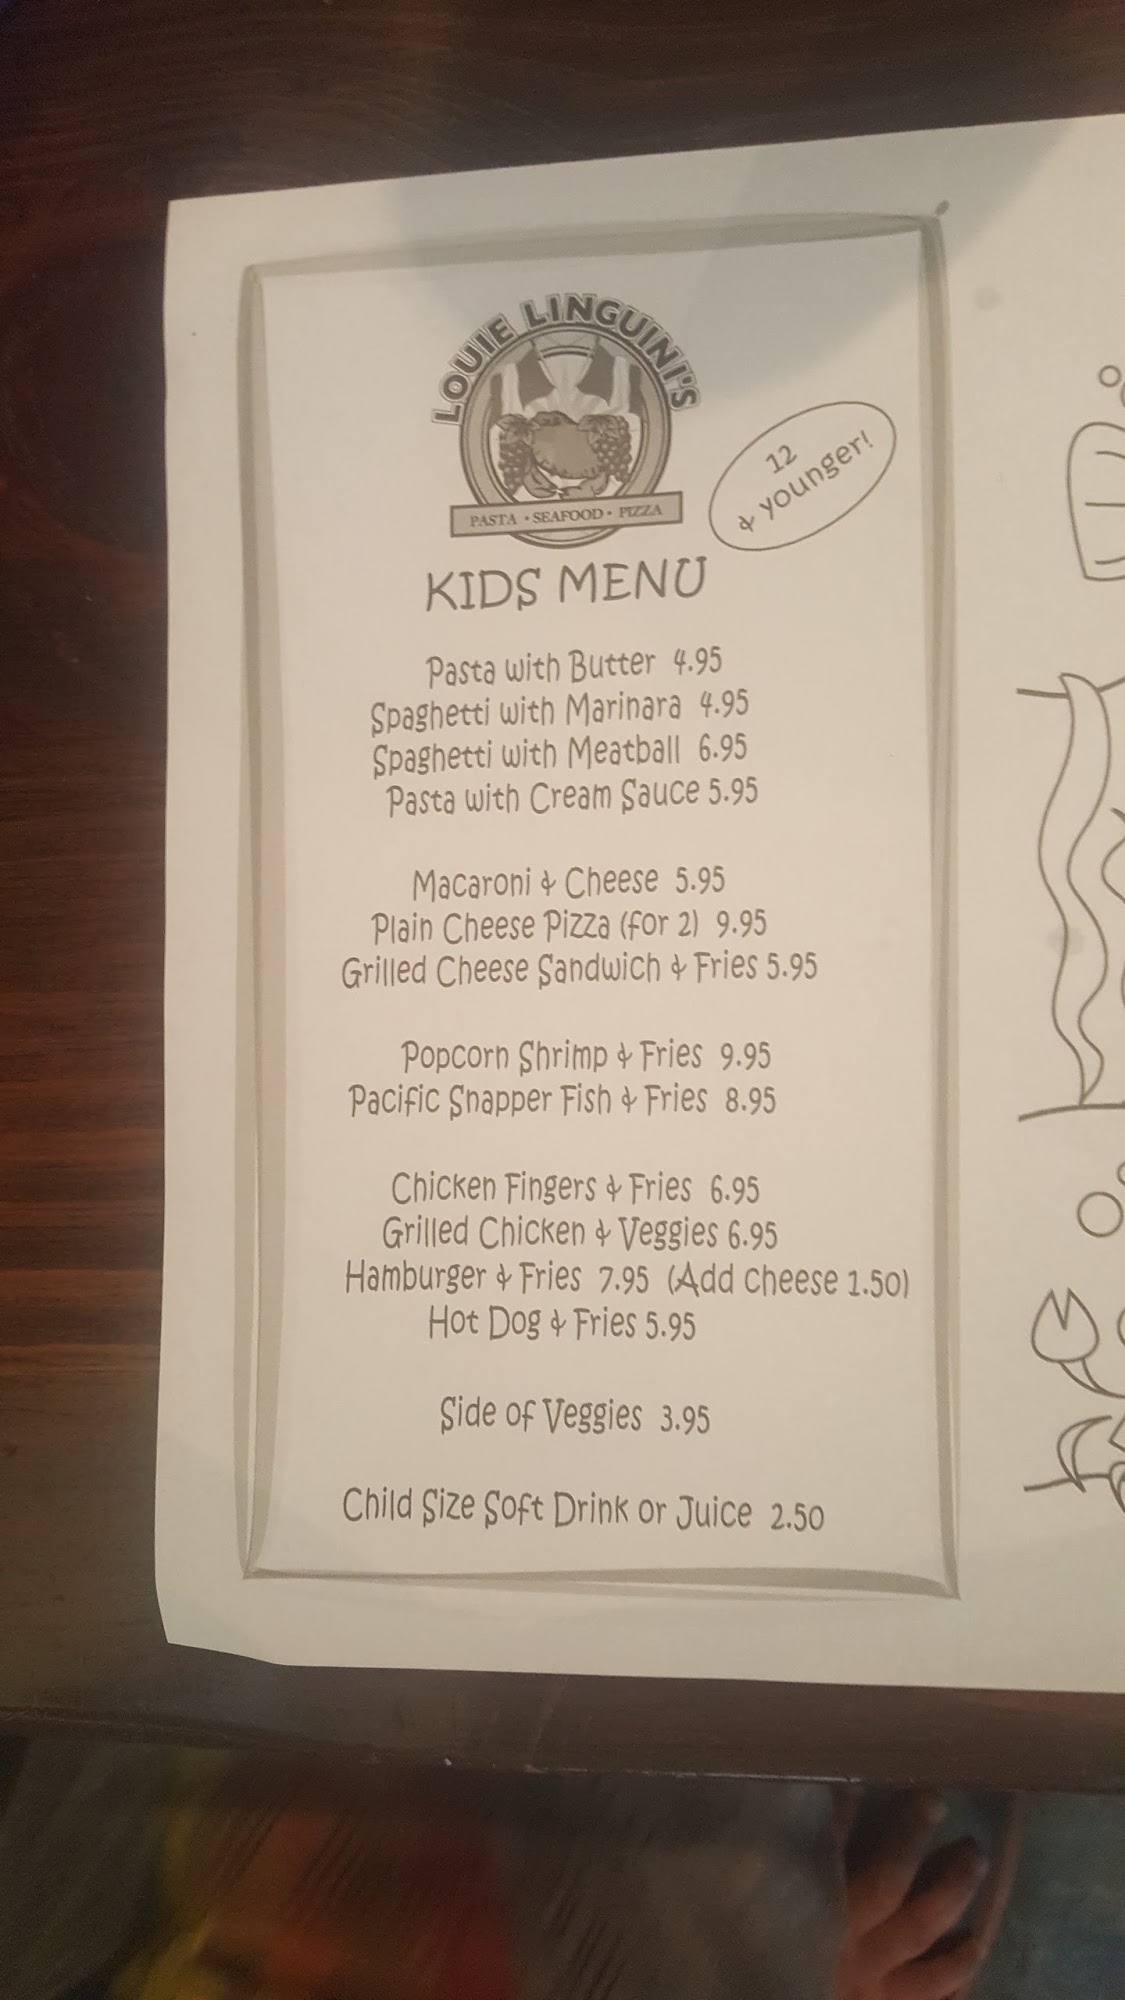 LOUIE LINGUINI'S
PASTA • SEAFOOD • PIZZA
12
& younger!
KIDS MENU
Pasta with Butter 4.95
Spaghetti with Marinara 4.95
Spaghetti with Meatball 6.95
Pasta with Cream Sauce 5.95
Macaroni & Cheese 5.95
Plain Cheese Pizza (for 2) 9.95
Grilled Cheese Sandwich & Fries 5.95
Popcorn Shrimp & Fries 9.95
Pacific Snapper Fish & Fries 8.95
Chicken Fingers & Fries 6.95
Grilled Chicken & Veggies 6.95
Hamburger & Fries 7.95 (Add cheese 1.50)
Hot Dog & Fries 5.95
Side of Veggies 3.95
Child Size Soft Drink or Juice 2.50